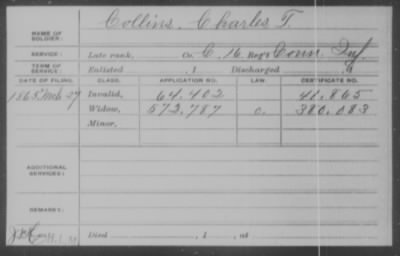 NAME OF SOLDIER: Collins, Charles T.
SERVICE: Late rank, Co. C, 16 Reg't Conn. Inf.
TERM OF SERVICE: Enlisted , 1 Discharged , 1
DATE OF FILING. CLASS. APPLICATION NO. LAW. CERTIFICATE NO.
Invalid, 64.402 41.865
Widow, 573.787 380.083
Minor,
ADDITIONAL SERVICES:
REMARKS:
Died , 1 , at